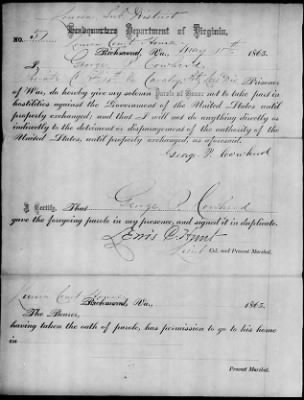 Louisa Sub District
Headquarters Department of Virginia,
No. 57
Louisa Court House
Richmond, Va., May 1865.
I, George P. Cowherd
Private C Prisoner
of War, do hereby give my solemn Parole of Honor not to take part in
hostilities against the Government of the United States until
properly exchanged; and that I will not do anything directly or
indirectly to the detriment or disparagement of the authority of
the United States, until properly exchanged, as aforesaid.
George P. Cowherd
I Certify, That George P. Cowherd
gave the foregoing parole in my presence, and signed it in duplicate.
Lewis C. Hunt
Lieut Col. and Provost Marshal.
Louisa Court House
Richmond, Va., 1865.
The Bearer,
having taken the oath of parole, has permission to go to his home
in
Provost Marshal.